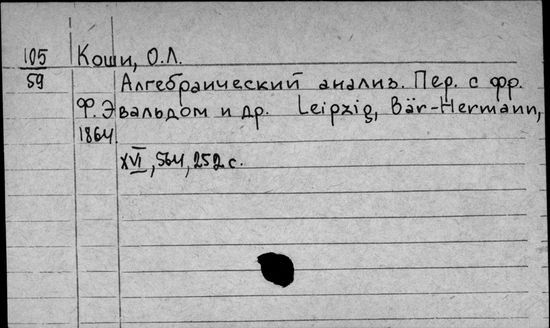 105 Коши, О.Л.
59 Алгебраический анализ. Пер. с фр.
Ф. Эвальдом и др. Leipzig, Bär-Hermann,
1864.
XVI, 564, 252 с.